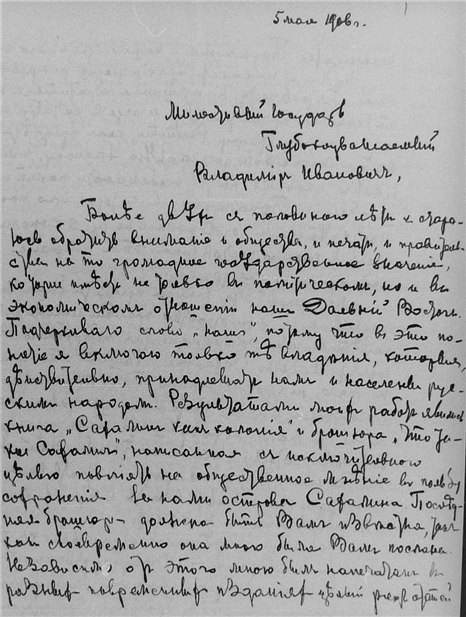 5 мая 1906 г.
Милостивый Государь
Глубокоуважаемый
Владимiръ Ивановичъ,
Болѣе двухъ съ половиною лѣтъ я стара-
юсь обратить вниманiе и общества, и печати, и правитель-
ства на то громадное государственное значенiе,
которое имѣетъ не только въ политическомъ, но и въ
экономическомъ отношенiи нашъ Дальнiй Востокъ.
Подчеркиваю слово „нашъ", потому что въ это по-
нятiе я включаю только тѣ владѣнiя, которыя,
дѣйствительно, принадлежатъ намъ и населены рус-
скимъ народомъ. Результатами моихъ работъ явились
книга „Сахалинъ какъ колонiя" и брошюра „Что та-
кое Сахалинъ", написанная съ исключительною
цѣлью повлiять на общественное мнѣнiе въ пользу
сохраненiя за нами острова Сахалина. Послѣд-
няя брошюра должна быть Вамъ извѣстна, такъ
какъ своевременно она мною была Вамъ послана.
Независимо отъ этого мною былъ напечатанъ въ
разныхъ повременныхъ изданiяхъ цѣлый рядъ статей